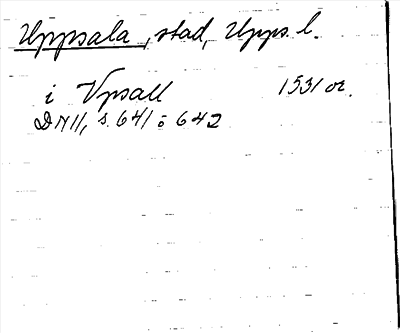 Uppsala, stad, Upps. l.
i Vpsall 1531 or.
DN 11, s. 641 o 642